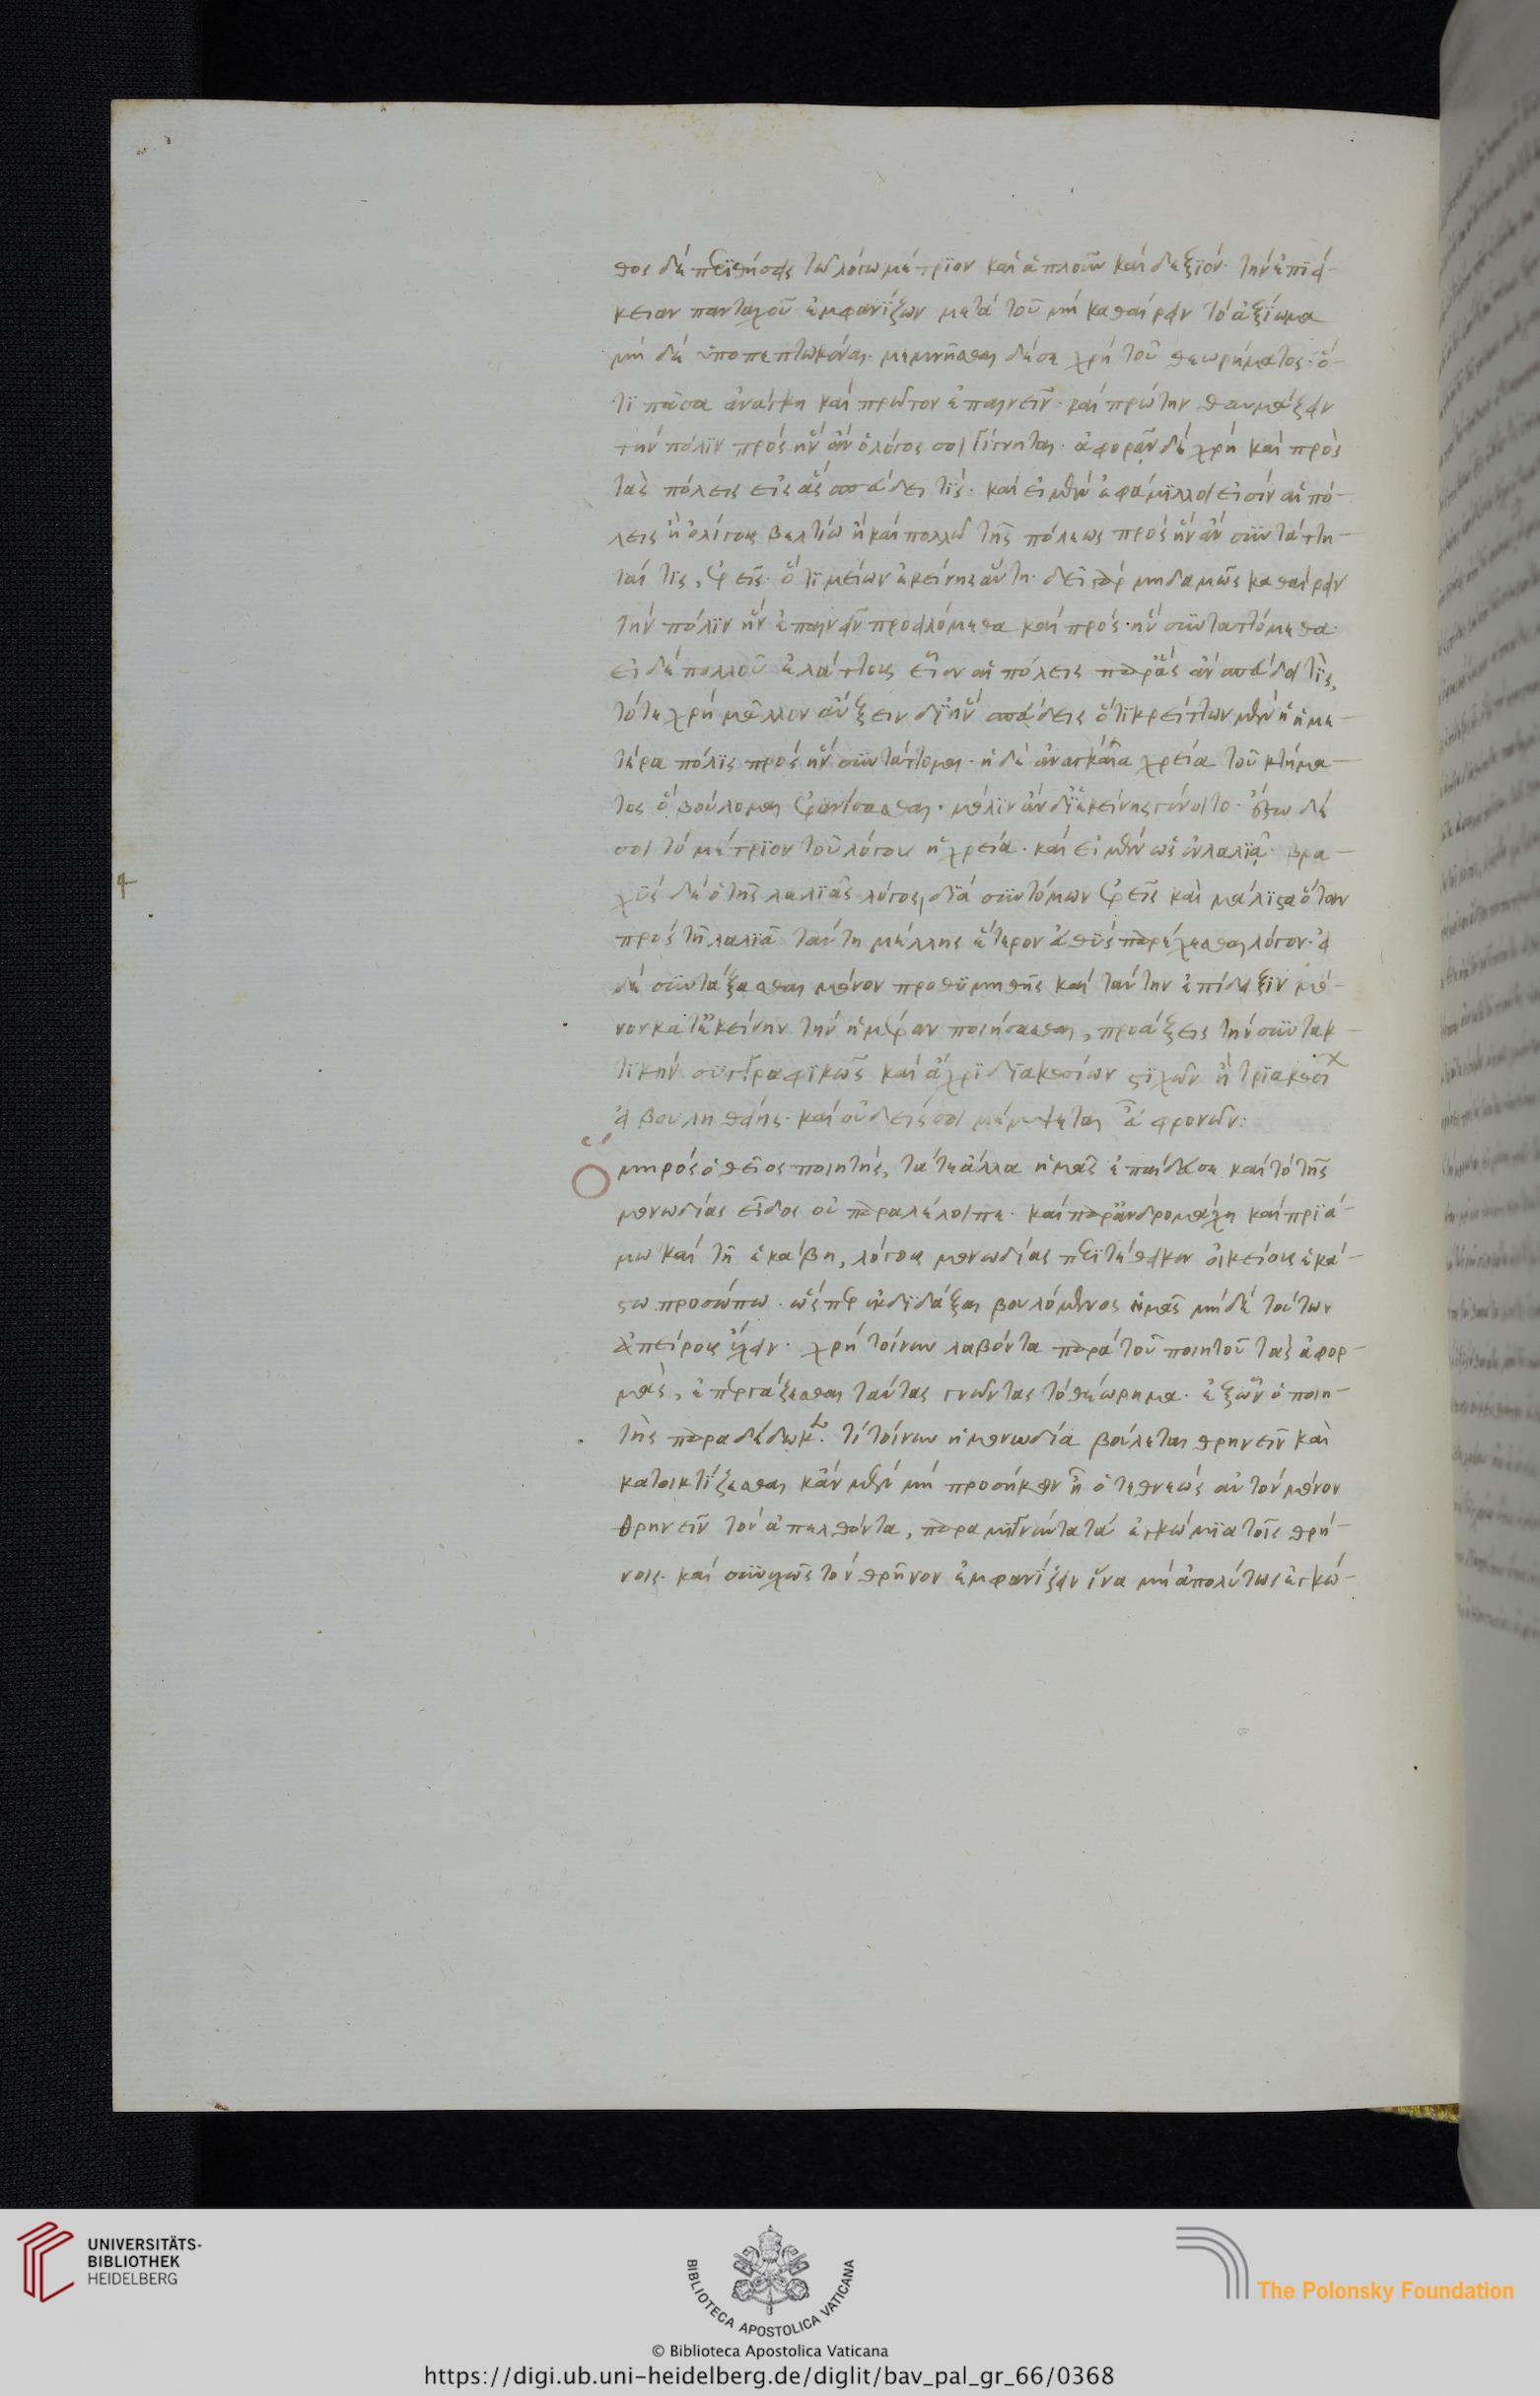 θος δὲ περιθήσεις τῷ λόγῳ μέτριον καὶ ἁπλοῦν καὶ δεξιόν· τὴν ἐπιεί-
κειαν πανταχοῦ ἐμφανίζων μετὰ τοῦ μὴ καθαίρειν τὸ ἀξίωμα
μὴ δὲ ὑποπεπτωκέναι· μεμνῆσθαι δέ σε χρὴ τοῦ θεωρήματος· ὅ-
τι πᾶσα ἀνάγκη καὶ πρῶτον ἐπαινεῖν· καὶ πρώτην θαυμάζειν
τὴν πόλιν πρὸς ἣν ἂν ὁ λόγος σοι γίγνηται· ἀφορᾶν δὲ χρὴ καὶ πρὸς
τὰς πόλεις εἰς ἃς σπεύδει τίς· καὶ εἰ μὲν ἐφάμιλλοι εἰσὶν αἱ πό-
λεις ἢ ὀλίγοις βελτίω ἢ καὶ πολλῷ τῆς πόλεως πρὸς ἣν ἂν συντάττη-
ταί τις, ἐρεῖς· ὅτι μείων ἐκείνης αὕτη· δεῖ γὰρ μηδαμῶς καθαίρειν
τὴν πόλιν ἣν ἐπαινεῖν προειλόμεθα καὶ πρὸς ἣν συνταττόμεθα·
εἰ δὲ πολλοῦ ἐλάττους εἶεν αἱ πόλεις παρ' ἃς ἂν σπεύδοι τις,
τότε χρὴ μᾶλλον αὔξειν δι' ἣν σπεύδεις ὅτι κρείττων μὲν ἡ ἡμε-
τέρα πόλις πρὸς ἣν συντάττομαι· ἡ δὲ ἀναγκαία χρεία τοῦ κτήμα-
τος ὃ βούλομαι ἐρανίσασθαι· μόλιν ἂν δι' ἐκείνης γένοιτο· ἔστω δέ
σοι τὸ μέτριον τοῦ λόγου ἡ χρεία· καὶ εἰ μὲν ὡς ἐν λαλιᾷ· βρα-
χὺς δὲ ὁ τῆς λαλιᾶς λόγος, διὰ συντόμων ἐρεῖς καὶ μάλιστα ὅταν
πρὸς τῇ λαλιᾷ ταύτῃ μέλλῃς ἕτερον εὐθὺς παρέχεσθαι λόγον· εἰ
δὲ συντάξασθαι μόνον προθυμηθῇς καὶ ταύτην ἐπίδειξιν μό-
νον κατ' ἐκείνην τὴν ἡμέραν ποιήσασθαι, προάξεις τὴν συντακ-
τικὴν συγγραφικῶς καὶ ἄχρι διακοσίων στίχων ἢ τριακοσί
εἰ βουληθείης· καὶ οὐδείς σοι μέμψεται εὖ φρονῶν:
Ὅμηρος ὁ θεῖος ποιητὴς, τά τε ἄλλα ἡμᾶς ἐπαίδευσε καὶ τὸ τῆς
μονωδίας εἶδος οὐ παραλέλοιπε· καὶ παρ' ἀνδρομάχη καὶ πριά-
μω καὶ τῇ ἑκάβη, λόγους μονωδίας περιτέθεικεν οἰκείους ἑκά-
στω προσώπω· ὥσπερ ἐκδιδάξαι βουλόμενος ἡμᾶς μὴ δὲ τούτων
ἀπείρους ἔχειν· χρὴ τοίνυν λαβόντα παρὰ τοῦ ποιητοῦ τὰς ἀφορ-
μὰς, ἐπεργάζεσθαι ταύτας γνῶντας τὸ θεώρημα· ἐξ ὧν ὁ ποιη-
τὴς παραδέδωκεν· τί τοίνυν ἡ μονωδία βούλεται θρηνεῖν καὶ
κατοικτίζεσθαι κἂν μὲν μὴ προσήκων ᾖ ὁ τεθνεὼς αὐτὸν μόνον
θρηνεῖν τὸν ἀπελθόντα, παραμιγνύντα τὰ ἐγκώμια τοῖς θρή-
νοις· καὶ συνεχῶς τὸν θρῆνον ἐμφανίζειν ἵνα μὴ ἀπολύτως ἐγκώ-
UNIVERSITÄTS-
BIBLIOTHEK
HEIDELBERG
BIBLIOTECA APOSTOLICA VATICANA
The Polonsky Foundation
© Biblioteca Apostolica Vaticana
https://digi.ub.uni-heidelberg.de/diglit/bav_pal_gr_66/0368